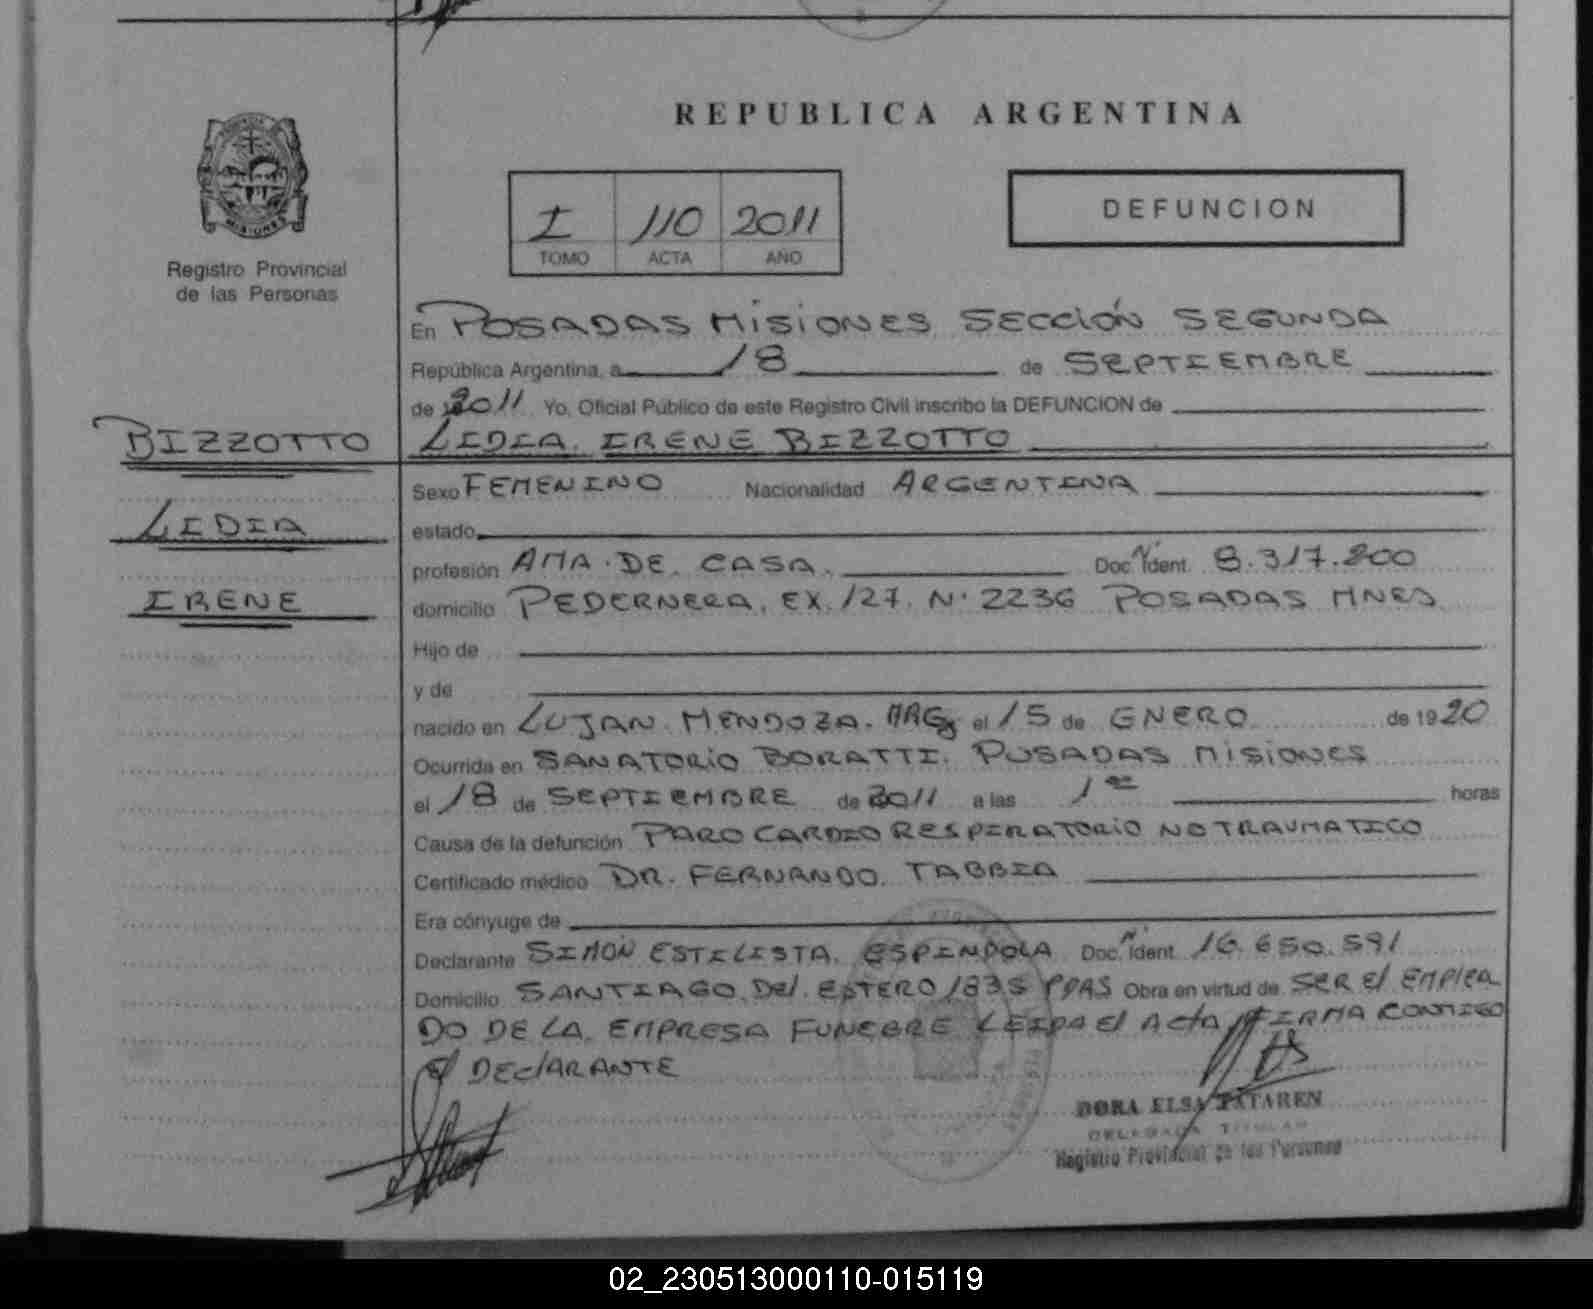 REPUBLICA ARGENTINA
MISIONES
Registro Provincial
de las Personas
I 110 2011
TOMO ACTA AÑO
DEFUNCION
En POSADAS MISIONES SECCIÓN SEGUNDA
República Argentina, a 18 de SEPTIEMBRE
de 2011 Yo, Oficial Público de este Registro Civil inscribo la DEFUNCION de
BIZZOTTO
LIDIA. IRENE BIZZOTTO
Sexo FEMENINO Nacionalidad ARGENTINA
LIDIA
estado
profesión AMA. DE. CASA. Doc. Nº Ident. 8.317.200
IRENE
domicilio PEDERNERA. EX. 127. Nº 2236 POSADAS MNES
Hijo de
y de
nacido en LUJAN. MENDOZA. ARG el 15 de ENERO de 1920
Ocurrida en SANATORIO BORATTI. POSADAS MISIONES
el 18 de SEPTIEMBRE de 2011 a las 1 horas
Causa de la defunción PARO CARDIO RESPIRATORIO NO TRAUMATICO
Certificado médico DR. FERNANDO. TABBIA
Era cónyuge de
Declarante SIMÓN ESTILISTA. ESPINDOLA Doc. Nº Ident. 16.650.591
Domicilio SANTIAGO. DEL. ESTERO 1835 PDAS Obra en virtud de SER EL EMPLEA
DO DE LA. EMPRESA FUNEBRE LEIDA El ACTA FIRMA CONMIGO
El DEClARANTE
DORA ELSA TATAREN
DELEGADA TITULAR
Registro Provincial de las Personas
02_230513000110-015119